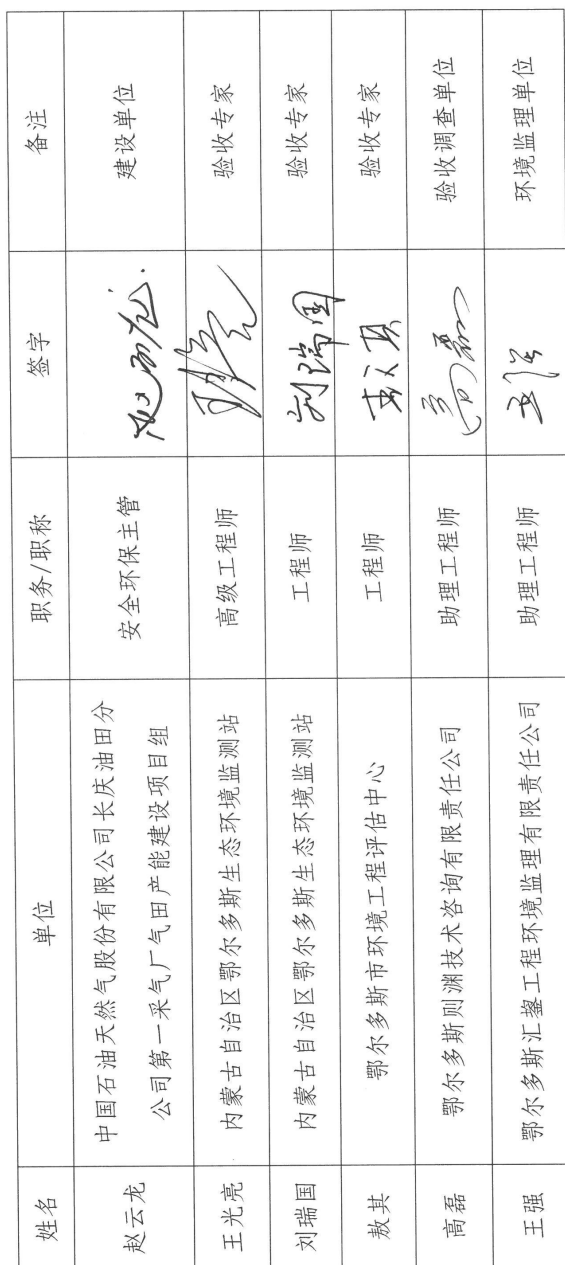 姓名 单位 职务/职称 签字 备注
赵云龙 中国石油天然气股份有限公司长庆油田分 安全环保主管 赵云龙 建设单位
公司第一采气厂气田产能建设项目组
王光亮 内蒙古自治区鄂尔多斯生态环境监测站 高级工程师 验收专家
刘瑞国 内蒙古自治区鄂尔多斯生态环境监测站 工程师 刘瑞国 验收专家
敖其 鄂尔多斯市环境工程评估中心 工程师 验收专家
高磊 鄂尔多斯则渊技术咨询有限责任公司 助理工程师 高磊 验收调查单位
王强 鄂尔多斯汇鋆工程环境监理有限责任公司 助理工程师 王强 环境监理单位